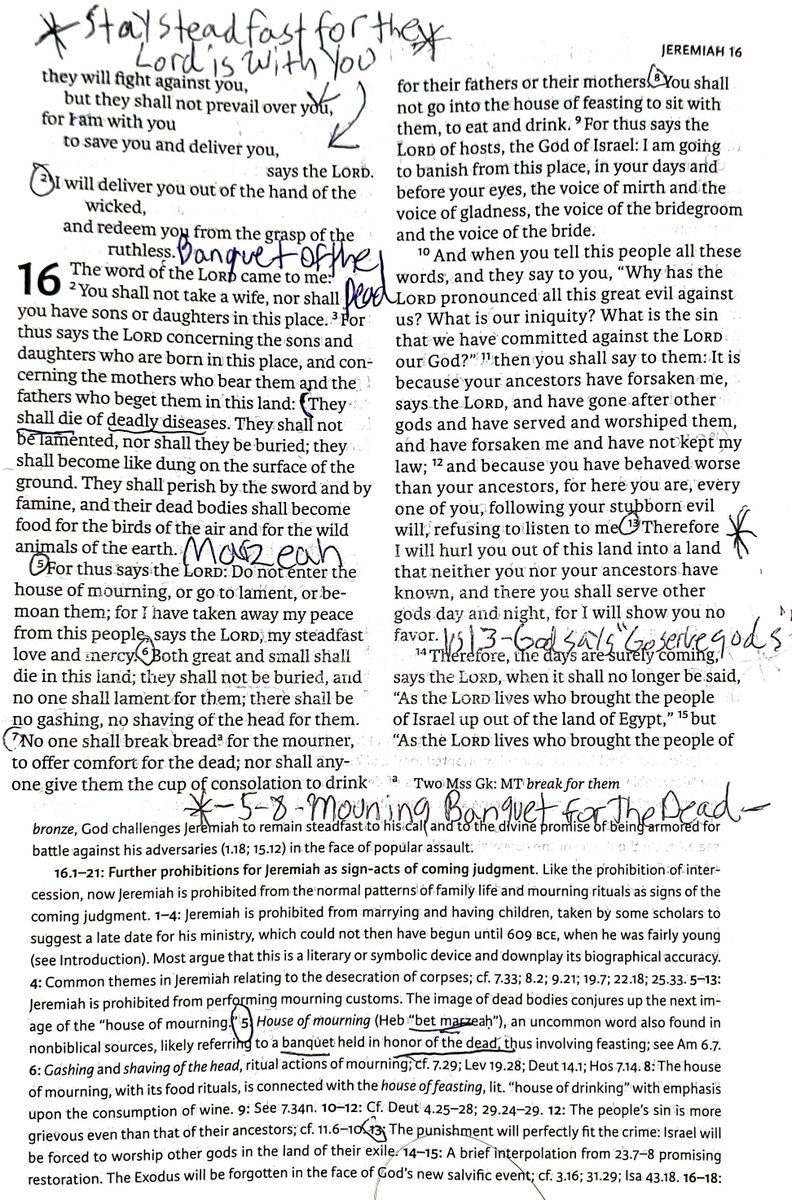 *Stay steadfast for the*
Lord is with You
JEREMIAH 16
they will fight against you,
but they shall not prevail over you,
for I am with you
to save you and deliver you,
says the LORD.
21 I will deliver you out of the hand of the
wicked,
and redeem you from the grasp of the
ruthless. Banquet of the
Dead
16 The word of the LORD came to me:
2 You shall not take a wife, nor shall
you have sons or daughters in this place. 3 For
thus says the LORD concerning the sons and
daughters who are born in this place, and con-
cerning the mothers who bear them and the
fathers who beget them in this land: 4 They
shall die of deadly diseases. They shall not
be lamented, nor shall they be buried; they
shall become like dung on the surface of the
ground. They shall perish by the sword and by
famine, and their dead bodies shall become
food for the birds of the air and for the wild
animals of the earth. Marzeah
5 For thus says the LORD: Do not enter the
house of mourning, or go to lament, or be-
moan them; for I have taken away my peace
from this people, says the LORD, my steadfast
love and mercy. 6 Both great and small shall
die in this land; they shall not be buried, and
no one shall lament for them; there shall be
no gashing, no shaving of the head for them.
7 No one shall break bread a for the mourner,
to offer comfort for the dead; nor shall any-
one give them the cup of consolation to drink
for their fathers or their mothers. 8 You shall
not go into the house of feasting to sit with
them, to eat and drink. 9 For thus says the
LORD of hosts, the God of Israel: I am going
to banish from this place, in your days and
before your eyes, the voice of mirth and the
voice of gladness, the voice of the bridegroom
and the voice of the bride.
10 And when you tell this people all these
words, and they say to you, “Why has the
LORD pronounced all this great evil against
us? What is our iniquity? What is the sin
that we have committed against the LORD
our God?” 11 then you shall say to them: It is
because your ancestors have forsaken me,
says the LORD, and have gone after other
gods and have served and worshiped them,
and have forsaken me and have not kept my
law; 12 and because you have behaved worse
than your ancestors, for here you are, every
one of you, following your stubborn evil
will, refusing to listen to me. 13 Therefore *
I will hurl you out of this land into a land
that neither you nor your ancestors have
known, and there you shall serve other
gods day and night, for I will show you no
favor. Vs 13 - God says "Go serve gods"
14 Therefore, the days are surely coming,
says the LORD, when it shall no longer be said,
“As the LORD lives who brought the people
of Israel up out of the land of Egypt,” 15 but
“As the LORD lives who brought the people of
a Two Mss Gk: MT break for them
* - 5-8 - Mouning Banquet for The Dead -
bronze, God challenges Jeremiah to remain steadfast to his call and to the divine promise of being armored for
battle against his adversaries (1.18; 15.12) in the face of popular assault.
16.1–21: Further prohibitions for Jeremiah as sign-acts of coming judgment. Like the prohibition of inter-
cession, now Jeremiah is prohibited from the normal patterns of family life and mourning rituals as signs of the
coming judgment. 1–4: Jeremiah is prohibited from marrying and having children, taken by some scholars to
suggest a late date for his ministry, which could not then have begun until 609 BCE, when he was fairly young
(see Introduction). Most argue that this is a literary or symbolic device and downplay its biographical accuracy.
4: Common themes in Jeremiah relating to the desecration of corpses; cf. 7.33; 8.2; 9.21; 19.7; 22.18; 25.33. 5–13:
Jeremiah is prohibited from performing mourning customs. The image of dead bodies conjures up the next im-
age of the “house of mourning.” 5: House of mourning (Heb “bet marzeaḥ”), an uncommon word also found in
nonbiblical sources, likely referring to a banquet held in honor of the dead, thus involving feasting; see Am 6.7.
6: Gashing and shaving of the head, ritual actions of mourning; cf. 7.29; Lev 19.28; Deut 14.1; Hos 7.14. 8: The house
of mourning, with its food rituals, is connected with the house of feasting, lit. “house of drinking” with emphasis
upon the consumption of wine. 9: See 7.34n. 10–12: Cf. Deut 4.25–28; 29.24–29. 12: The people’s sin is more
grievous even than that of their ancestors; cf. 11.6–10. 13: The punishment will perfectly fit the crime: Israel will
be forced to worship other gods in the land of their exile. 14–15: A brief interpolation from 23.7–8 promising
restoration. The Exodus will be forgotten in the face of God’s new salvific event; cf. 3.16; 31.29; Isa 43.18. 16–18: